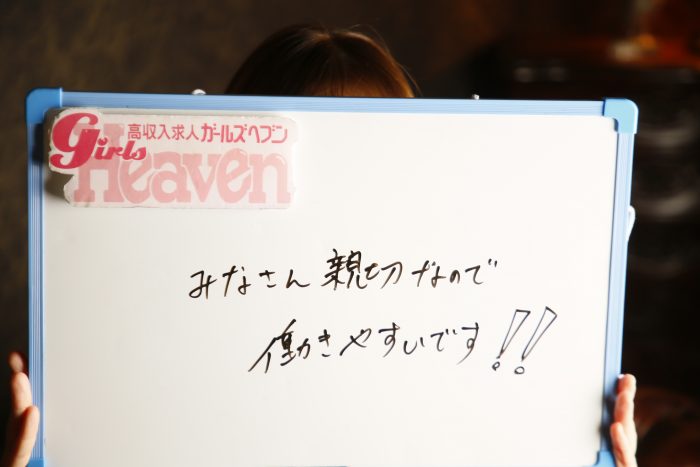 高収入求人 ガールズヘブン
Girls Heaven
みなさん 親切なので
働きやすいです!!